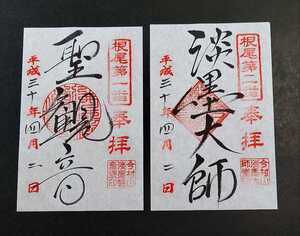 根尾第一番
奉拝
淡墨大師
平成三十年四月二日
根尾第一番
奉拝
聖観音
平成三十年四月二日